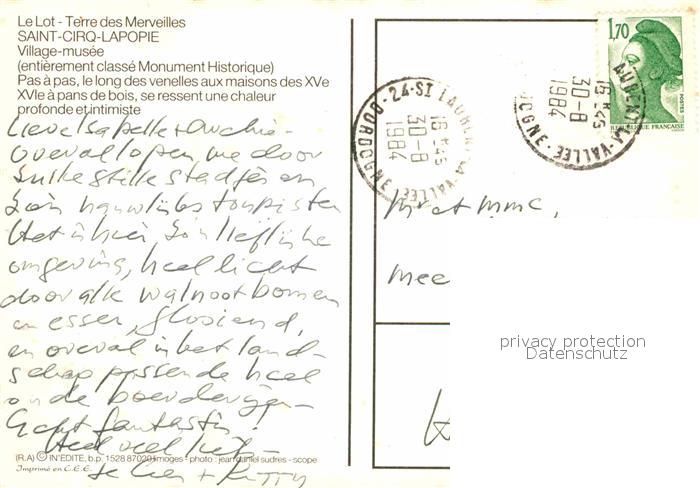 Le Lot - Terre des Merveilles
SAINT-CIRQ-LAPOPIE
Village-musée
(entièrement classé Monument Historique)
Pas à pas, le long des venelles aux maisons des XVe
XVIe à pans de bois, se ressent une chaleur
profonde et intimiste
Lieve Isabelle +
overal lopen we door
zulke stille stadjes en
zijn nauwlijks toeristen
Het is hier, zo'n lieflijke
omgeving, heel licht
door alle walnootbomen
en essen, glooiend,
en overal in het land-
schap passende heel
oude boerderijen -
Echt fantastisch!
Heel veel liefs -
+ Kitty
(R.A) © IN'EDITE, b.p. 1528 87020 limoges - photo : jean daniel sudres - scope
Imprimé en C.E.E.
24-ST LAURENT-LA-VALLEE
DORDOGNE
16 H 45
30-8
1984
LAURENT-LA-VALLEE
DOGNE
16 H 45
30-8
1984
1,70
POSTES
REPUBLIQUE FRANÇAISE
Mr et Mme,
privacy protection
Datenschutz